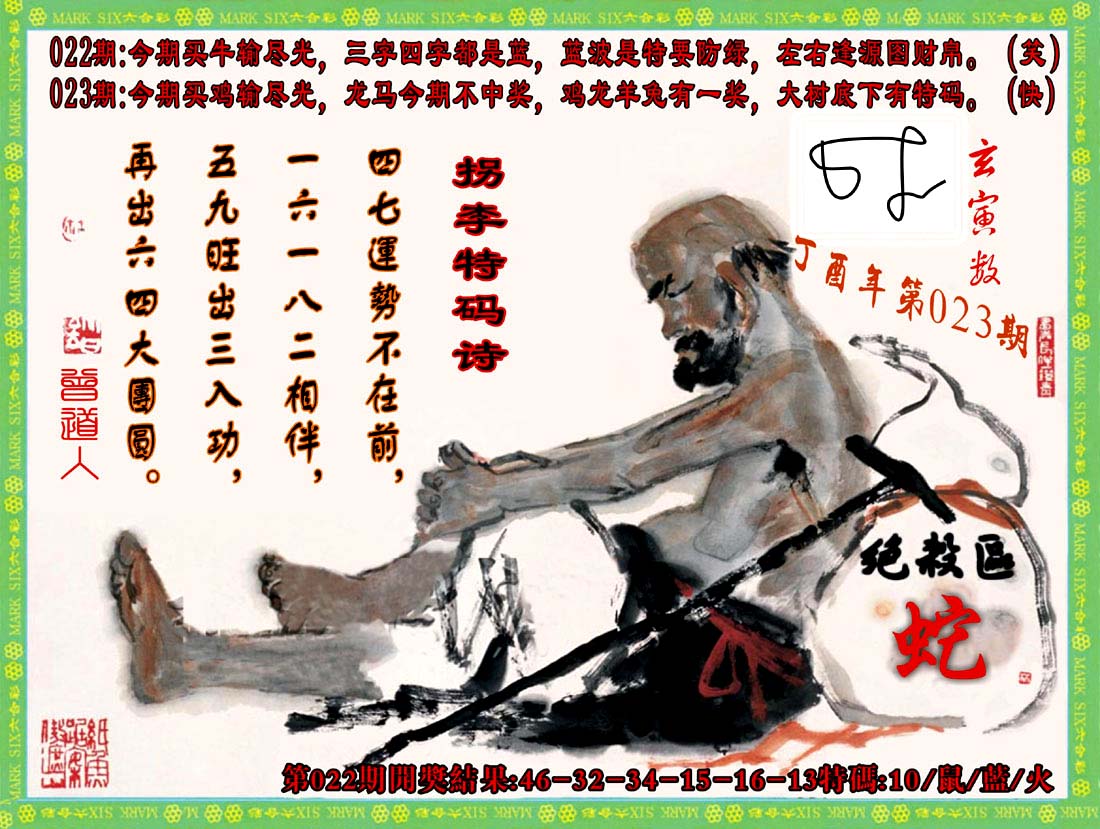 MARK SIX六合彩
022期:今期买牛输尽光，三字四字都是蓝，蓝波是特要防绿，左右逢源图财帛。(笑)
023期:今期买鸡输尽光，龙马今期不中奖，鸡龙羊兔有一奖，大树底下有特码。(快)
玄寅数
丁酉年第023期
拐李特码诗
四七運勢不在前，
一六一八二相伴，
五九旺出三入功，
再出六四大團圓。
曾道人
绝殺區
蛇
第022期開獎結果:46-32-34-15-16-13特碼:10/鼠/藍/火